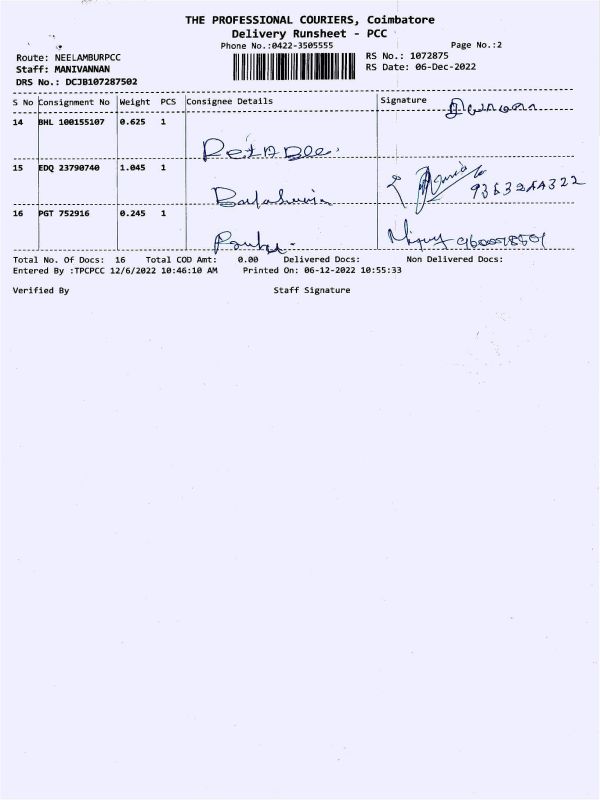 THE PROFESSIONAL COURIERS, Coimbatore
Delivery Runsheet - PCC
Phone No.:0422-3505555
Page No.:2
Route: NEELAMBURPCC
Staff: MANIVANNAN
DRS No.: DCJB107287502
RS No.: 1072875
RS Date: 06-Dec-2022
S No Consignment No Weight PCS Consignee Details Signature
14 BHL 100155107 0.625 1
15 EDQ 23790740 1.045 1
16 PGT 752916 0.245 1
Total No. Of Docs: 16 Total COD Amt: 0.00 Delivered Docs: Non Delivered Docs:
Entered By :TPCPCC 12/6/2022 10:46:10 AM Printed On: 06-12-2022 10:55:33
Verified By Staff Signature